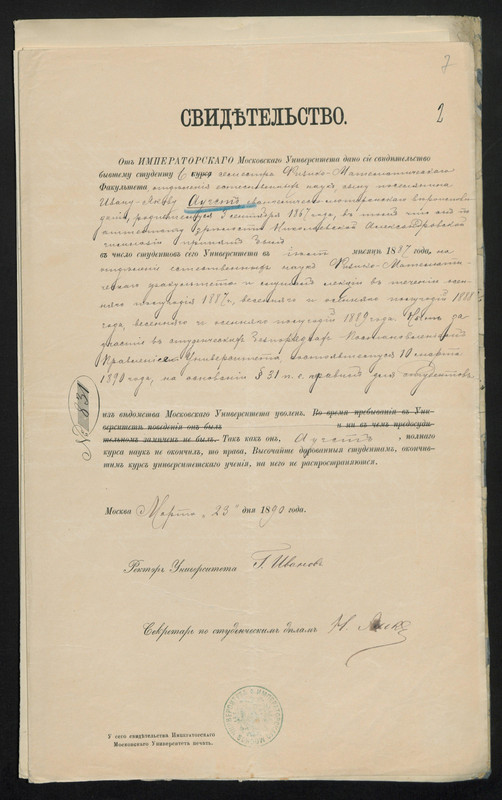 2
СВИДѢТЕЛЬСТВО.
Отъ ИМПЕРАТОРСКАГО Московскаго Университета дано сіе свидѣтельство
бывшему студенту 6 семестра Физико-Математическаго
Факультета отдѣленія естественныхъ наукъ, сыну поселянина
Ивану-Якову Аугстъ евангелическо-лютеранскаго вѣроисповѣ
данія, родившемуся 3 сентября 1867 года, въ томъ что онъ по
аттестату зрѣлости Николаевской Александровской
гимназіи принятъ былъ
въ число студентовъ сего Университета въ мѣсяцѣ 1887 года, на
отдѣленіе естественныхъ наукъ Физико-Математи-
ческаго факультета и слушалъ лекціи въ теченіе осен-
няго полугодія 1887 г., весенняго и осенняго полугодій 1888
года, весенняго и осенняго полугодій 1889 года. Нынѣ за
участіе въ студенческихъ безпорядкахъ
Правленія Университета, состоявшемуся 10 марта
1890 года, на основаніи § 31 правилъ для студентовъ
№ 831
изъ вѣдомства Московскаго Университета уволенъ. Во время пребыванія въ Уни-
верситетѣ поведенія онъ былъ и ни въ чемъ предосуди-
тельномъ замѣченъ не былъ. Такъ какъ онъ, Аугстъ, полнаго
курса наукъ не окончилъ, то права, Высочайше дарованныя студентамъ, окончив-
шимъ курсъ университетскаго ученія, на него не распространяются.
Москва Марта „23" дня 1890 года.
Ректоръ Университета Г. Ивановъ
Секретарь по студенческимъ дѣламъ Н.
У сего свидѣтельства Императорскаго
Московскаго Университета печать.